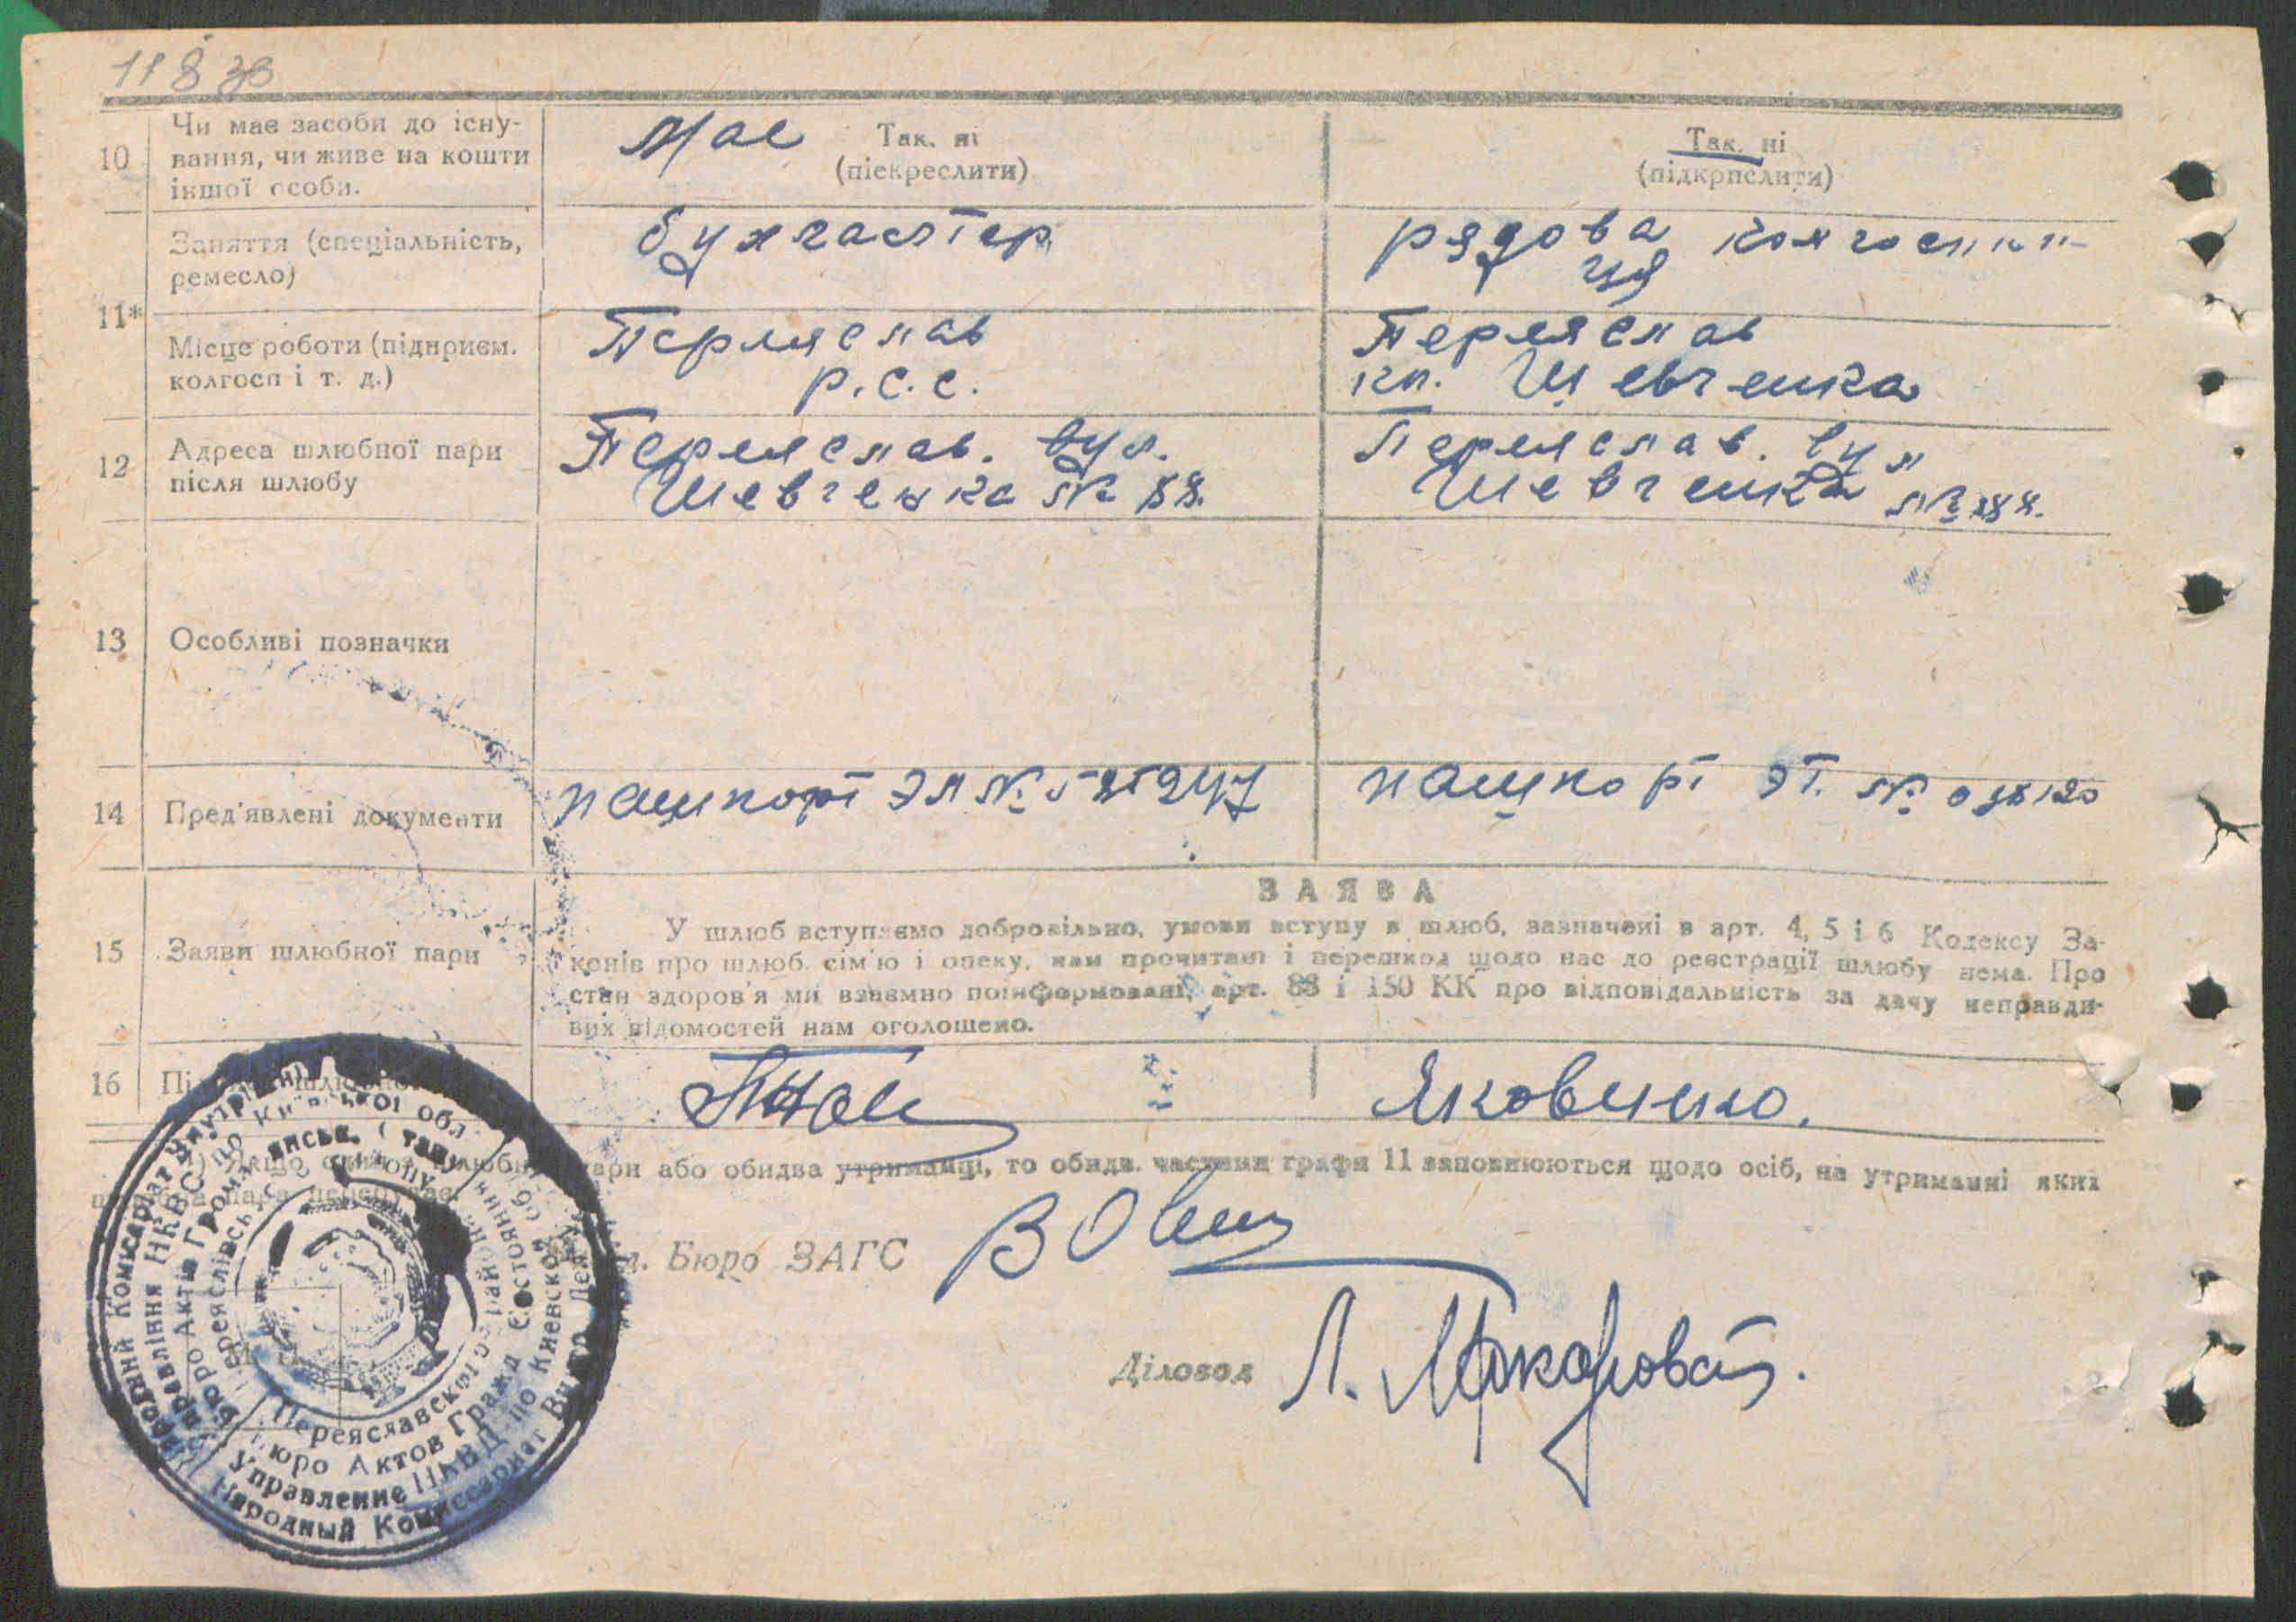 118 зв
10 Чи має засоби до існу-
вання, чи живе на кошти
іншої особи.
має Так. ні
(піскреслити)
Так. ні
(підкрислити)
11*
Заняття (спеціальність,
ремесло)
бухгалтер
рядова колгоспни-
ця
Місце роботи (підприєм.
колгосп і т. д.)
Переяслав
р.с.с.
Переяслав
кп. Шевченка
12 Адреса шлюбної пари
після шлюбу
Переяслав. вул.
Шевченка № 88.
Переяслав. вул
Шевченка № 88.
13 Особливі позначки
14 Пред'явлені документи
пашпорт ЭЛ №
пашпорт ЭТ. № 038120
15 Заяви шлюбної пари
ЗАЯВА
У шлюб вступаємо добровільно, умови вступу в шлюб, зазначені в арт. 4, 5 і 6 Кодексу За-
конів про шлюб сім'ю і опеку, нам прочитані і перешкод щодо нас до реєстрації шлюбу нема. Про
стан здоров'я ми взаємно поінформовані, арт. 88 і 150 КК про відповідальність за дачу неправди-
вих відомостей нам оголошено.
16
Яковенко.
пари або обидва утриманці, то обидв. частини графи 11 заповнюються щодо осіб, на утриманні яких
шлюбна пара перебуває.
Бюро ЗАГС
Діловод Л. Макароват.
М. П.
Народний Комісаріат Внутрішні
Управління НКВС по Київській обл
Бюро Актів Громадянськ. Стану
Переяслівського району
Переяславского района
Бюро Актов Гражд Состояния
Управление НКВД по Киевской об
Народный Комиссариат Внутр Дел